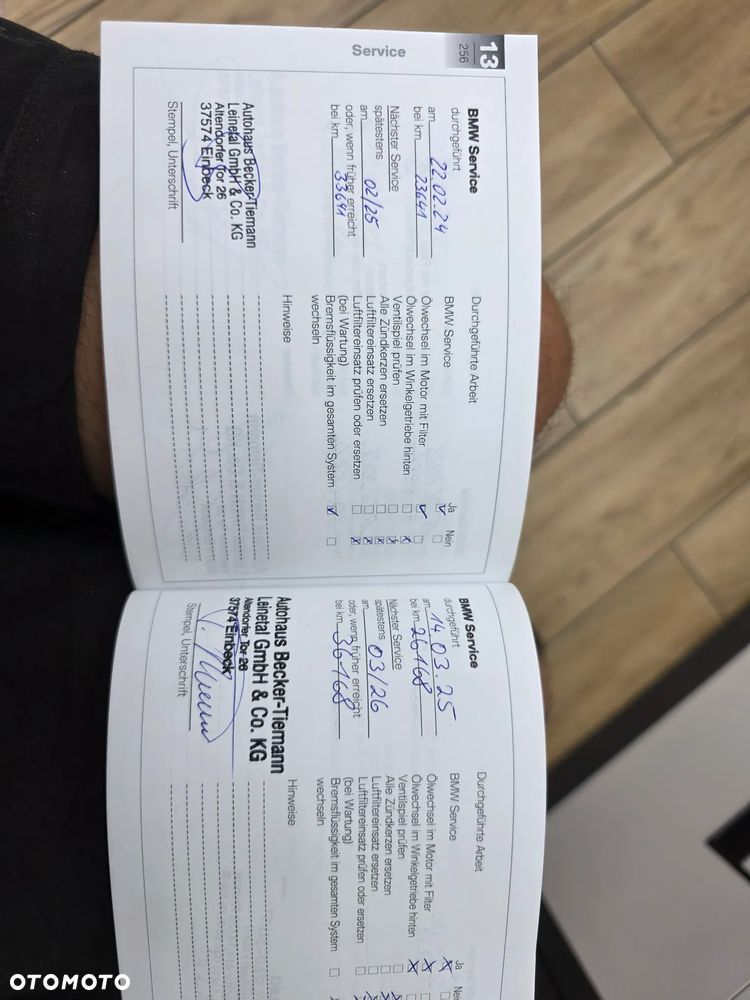 13
256
Service
BMW Service
durchgeführt
am 22.02.24
bei km 23641
Nächster Service
spätestens
am 02/25
oder, wenn früher erreicht
bei km 33641
Autohaus Becker-Tiemann
Leinetal GmbH & Co. KG
Altendorfer Tor 26
37574 Einbeck
Stempel, Unterschrift
Durchgeführte Arbeit
Ja Nein
BMW Service
Ölwechsel im Motor mit Filter
Ölwechsel im Winkelgetriebe hinten
Ventilspiel prüfen
Alle Zündkerzen ersetzen
Luftfiltereinsatz ersetzen
Luftfiltereinsatz prüfen oder ersetzen
(bei Wartung)
Bremsflüssigkeit im gesamten System
wechseln
Hinweise
BMW Service
durchgeführt
am 14.03.25
bei km 26168
Nächster Service
spätestens
am 03/26
oder, wenn früher erreicht
bei km 36168
Autohaus Becker-Tiemann
Leinetal GmbH & Co. KG
Altendorfer Tor 26
37574 Einbeck
Stempel, Unterschrift
Durchgeführte Arbeit
Ja
BMW Service
Ölwechsel im Motor mit Filter
Ölwechsel im Winkelgetriebe hinten
Ventilspiel prüfen
Alle Zündkerzen ersetzen
Luftfiltereinsatz ersetzen
Luftfiltereinsatz prüfen oder ersetzen
(bei Wartung)
Bremsflüssigkeit im gesamten System
wechseln
Hinweise
OTOMOTO